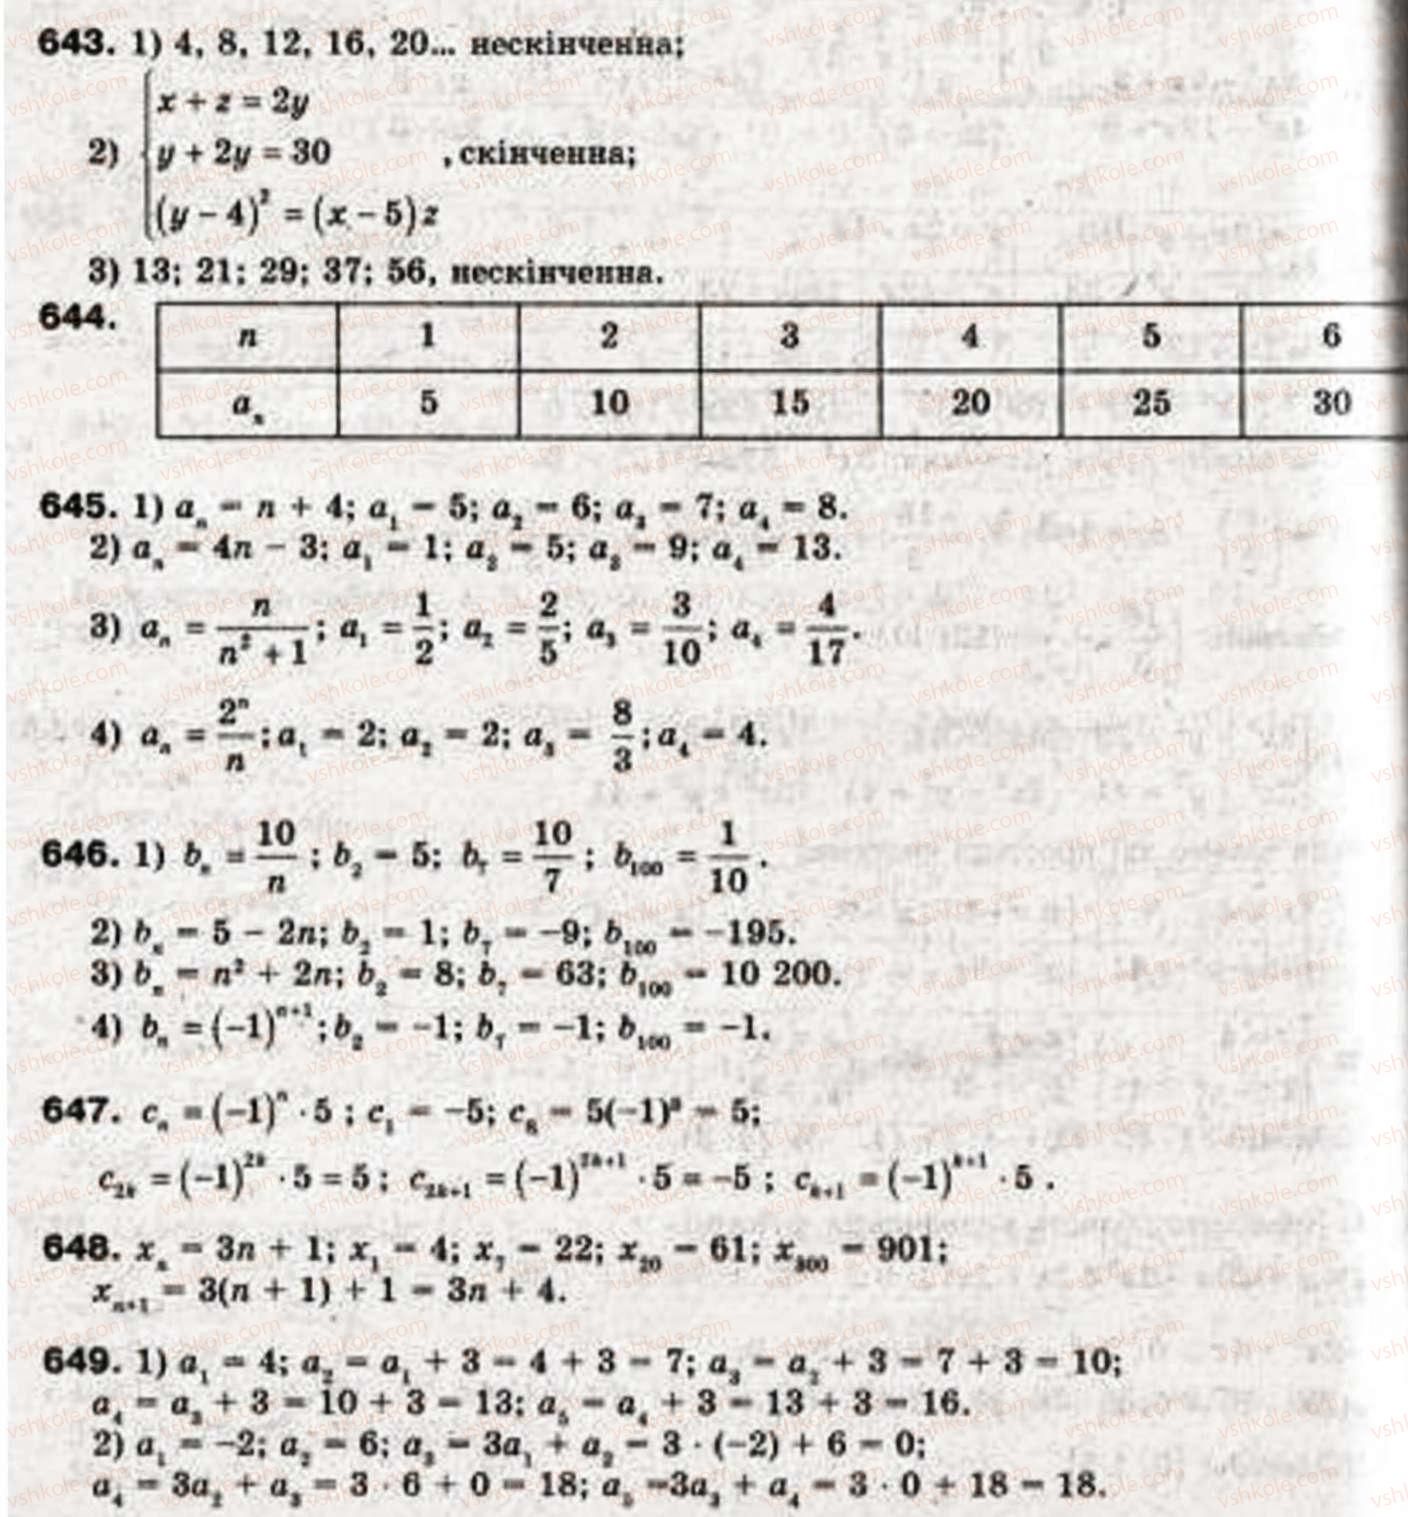 643. 1) 4, 8, 12, 16, 20... нескінченна;
x + z = 2y
2) y + 2y = 30 , скінченна;
(y − 4)² = (x − 5)z
3) 13; 21; 29; 37; 56, нескінченна.
644. n 1 2 3 4 5 6
aₙ 5 10 15 20 25 30
645. 1) aₙ = n + 4; a₁ = 5; a₂ = 6; a₃ = 7; a₄ = 8.
2) aₙ = 4n − 3; a₁ = 1; a₂ = 5; a₃ = 9; a₄ = 13.
3) aₙ = n/(n² + 1); a₁ = 1/2; a₂ = 2/5; a₃ = 3/10; a₄ = 4/17.
4) aₙ = 2ⁿ/n; a₁ = 2; a₂ = 2; a₃ = 8/3; a₄ = 4.
646. 1) bₙ = 10/n; b₂ = 5; b₇ = 10/7; b₁₀₀ = 1/10.
2) bₙ = 5 − 2n; b₂ = 1; b₇ = −9; b₁₀₀ = −195.
3) bₙ = n² + 2n; b₂ = 8; b₇ = 63; b₁₀₀ = 10 200.
4) bₙ = (−1)ⁿ⁺¹; b₂ = −1; b₇ = −1; b₁₀₀ = −1.
647. cₙ = (−1)ⁿ · 5 ; c₁ = −5; c₈ = 5(−1)⁸ = 5;
c₂ₖ = (−1)²ᵏ · 5 = 5 ; c₂ₖ₊₁ = (−1)²ᵏ⁺¹ · 5 = −5 ; cₖ₊₁ = (−1)ᵏ⁺¹ · 5 .
648. xₙ = 3n + 1; x₁ = 4; x₇ = 22; x₂₀ = 61; x₃₀₀ = 901;
xₙ₊₁ = 3(n + 1) + 1 = 3n + 4.
649. 1) a₁ = 4; a₂ = a₁ + 3 = 4 + 3 = 7; a₃ = a₂ + 3 = 7 + 3 = 10;
a₄ = a₃ + 3 = 10 + 3 = 13; a₅ = a₄ + 3 = 13 + 3 = 16.
2) a₁ = −2; a₂ = 6; a₃ = 3a₁ + a₂ = 3 · (−2) + 6 = 0;
a₄ = 3a₂ + a₃ = 3 · 6 + 0 = 18; a₅ =3a₃ + a₄ = 3 · 0 + 18 = 18.
vshkole.com